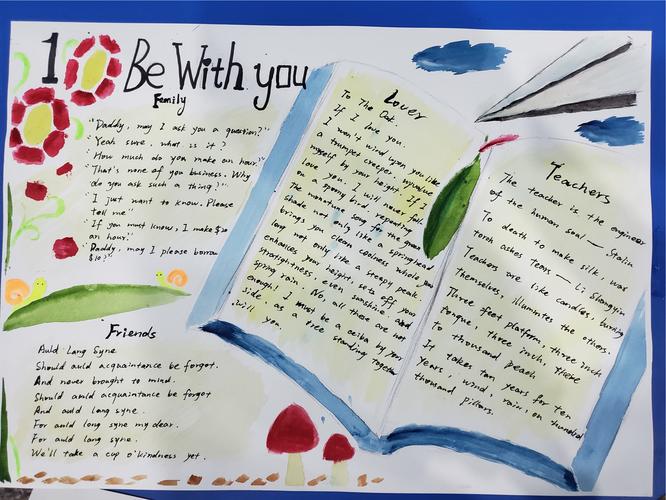 1 Be With you
Family
"Daddy, may I ask you a question?"
"Yeah sure, what is it?
"How much do you make an hour?"
"That's none of you business. Why
do you ask such a thing?"
"I just want to know. Please
tell me"
"If you must know, I make $20
an hour."
"Daddy, may I please borrow
$10?"
Friends
Auld Lang Syne
Should auld acquaintance be forgot.
And never brought to mind.
Should auld acquaintance be forgot
And auld lang syne.
For auld lang syne my dear.
For auld lang syne.
We'll take a cup o'kindness yet.
Lover
To The Oak.
If I love you.
I won't wind upon you like
a trumpet creeper
myself by your height. If I
love you. I will never
a pretty bird repeating
The monotune song for the green
shade not only like a springhead
brings you clean coolness whole year
long not only like a steepy peak.
enhances your height, sets off your
straightness, even sunshine. and
spring rain. No, all these are not
enough! I must be a ceiba by your
side, as a tree standing together
with you.
Teachers
The teacher is the engineer
of the human soul — Stalin
To death to make silk, wax
torch ashes tears — Li Shangyin
Teachers are like candles, burning
themselves, illuminates the others.
Three feet platform, three inch
tongue, three inch, there
to thousand peach.
It takes ten years for ten
years, wind, rain, on hundred
thousand pillars.